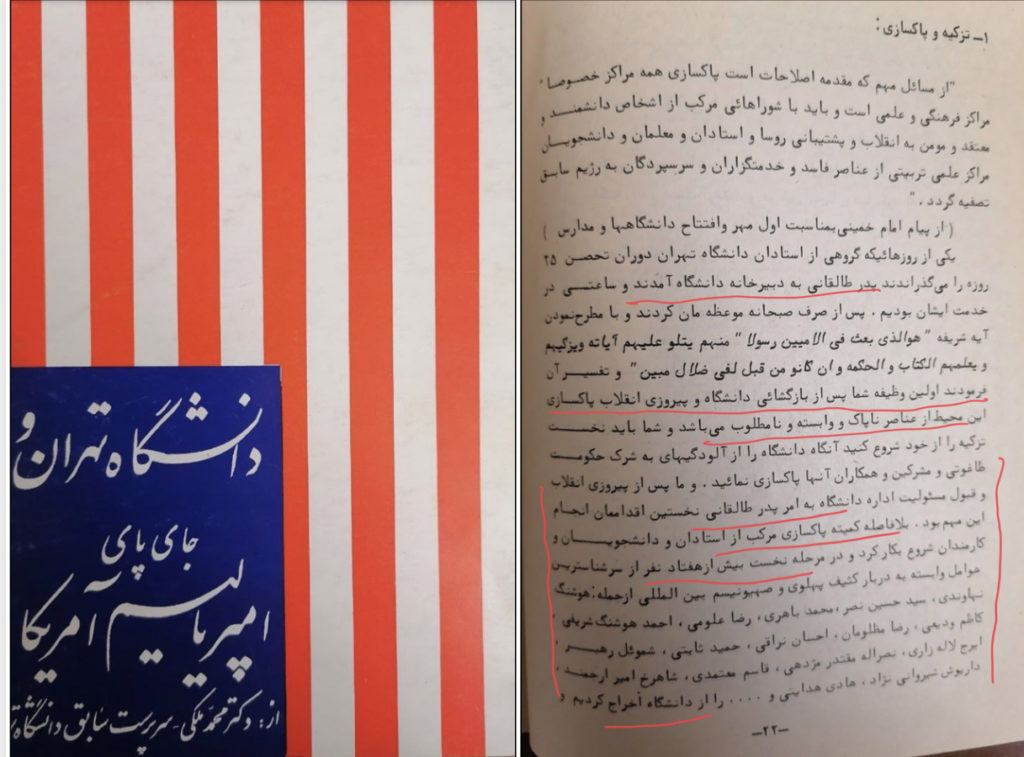 دانشگاه تهران و
جای پای
امپریالیسم آمریکا
از: دکتر محمد ملکی - سرپرست سابق دانشگاه
۱ـ تزکیه و پاکسازی :
"از مسائل مهم که مقدمه اصلاحات است پاکسازی همه مراکز خصوصا"
مراکز فرهنگی و علمی است و باید با شوراهائی مرکب از اشخاص دانشمند و
معتقد و مومن به انقلاب و پشتیبانی روسا و استادان و معلمان و دانشجویان
مراکز علمی تربیتی از عناصر فاسد و خدمتگزاران و سرسپردگان به رژیم سابق
تصفیه گردد . "
( از پیام امام خمینی بمناسبت اول مهر وافتتاح دانشگاهها و مدارس )
یکی از روزهائیکه گروهی از استادان دانشگاه تهران دوران تحصن ۲۵
روزه را می‌گذراندند پدر طالقانی به دبیرخانه دانشگاه آمدند و ساعتی در
خدمت ایشان بودیم . پس از صرف صبحانه موعظه مان کردند و با مطرح‌نمودن
آیه شریفه "هوالذی بعث فی الامیین رسولا" منهم یتلو علیهم آیاته ویزکیهم
و یعلمهم الکتاب و الحکمه و ان کانو من قبل لفی ضلال مبین" و تفسیر آن
فرمودند اولین وظیفه شما پس از بازگشائی دانشگاه و پیروزی انقلاب پاکسازی
این محیط از عناصر ناپاک و وابسته و نامطلوب می‌باشد و شما باید نخست
تزکیه را از خود شروع کنید آنگاه دانشگاه را از آلودگیهای به شرک حکومت
طاغوتی و مشرکین و همکاران آنها پاکسازی نمائید . و ما پس از پیروزی انقلاب
و قبول مسئولیت اداره دانشگاه به امر پدر طالقانی نخستین اقداممان انجام
این مهم بود . بلافاصله کمیته پاکسازی مرکب از استادان و دانشجویان و
کارمندان شروع بکار کرد و در مرحله نخست بیش از هفتاد نفر از سرشناسترین
عوامل وابسته به دربار کثیف پهلوی و صهیونیسم بین المللی ازجمله: هوشنگ
نهاوندی ، سید حسین نصر، محمد باهری ، رضا علومی ، احمد هوشنگ شریفی ،
کاظم ودیعی ، رضا مظلومان ، احسان نراقی ، حمید ثابتی ، شموئل رهبر ،
ایرج لاله زاری ، نصراله مقتدر مژدهی ، قاسم معتمدی ، شاهرخ امیر ارجمند ،
داریوش شیروانی نژاد ، هادی هدایتی و .... را از دانشگاه اخراج کردیم و
-۲۲-